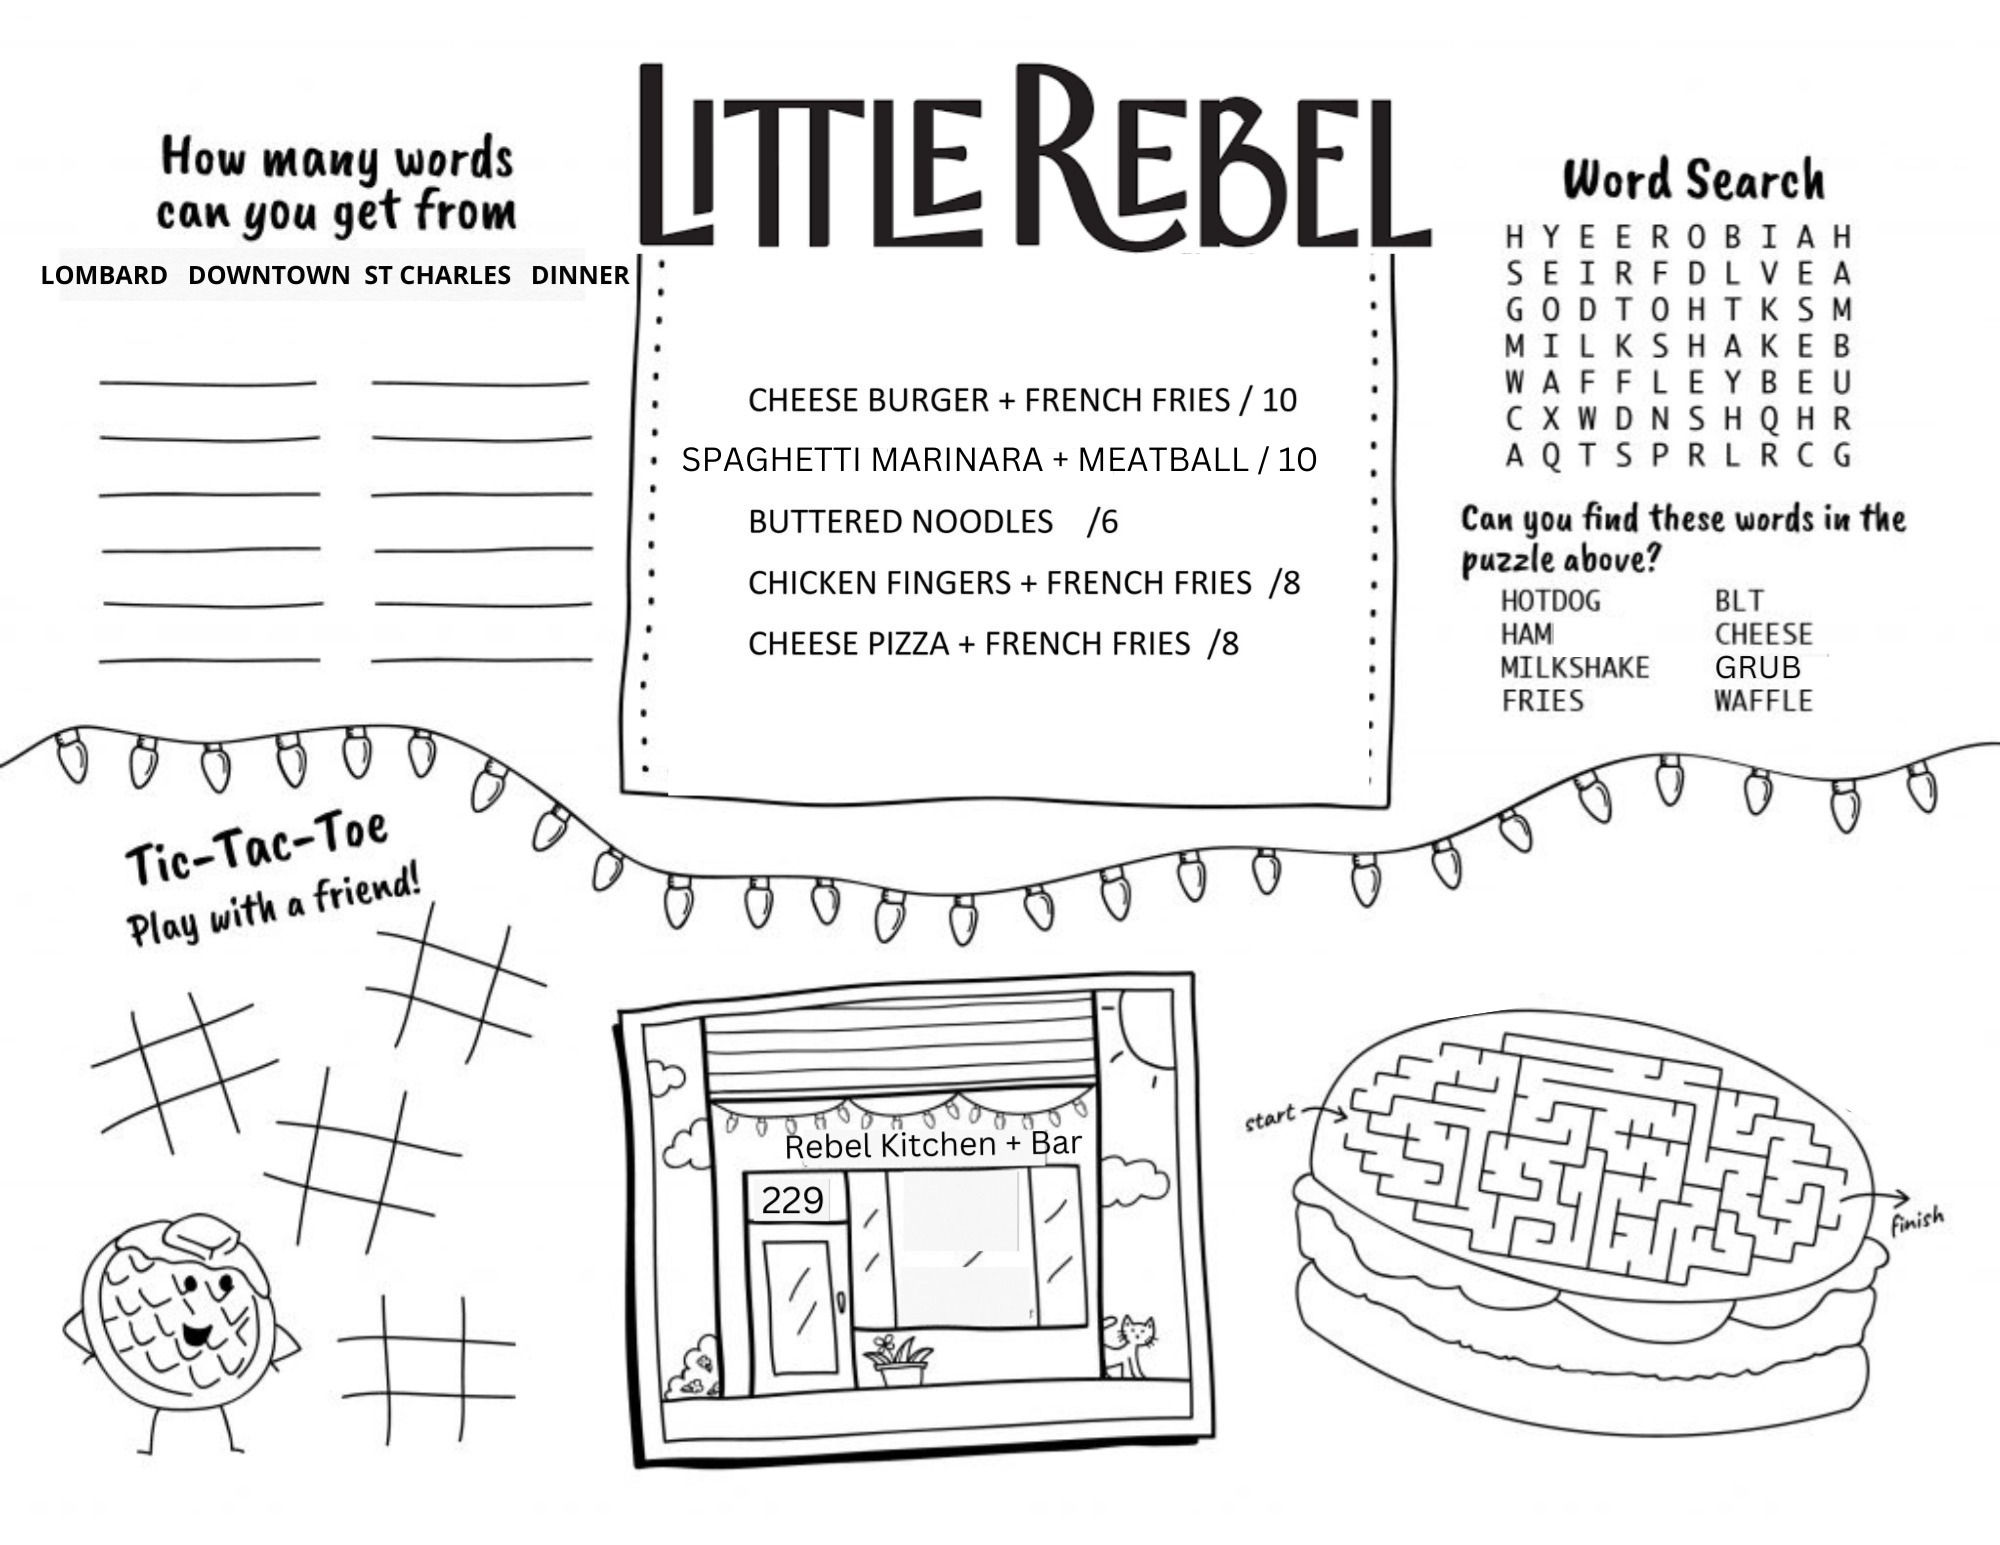 LITTLE REBEL
How many words
can you get from
LOMBARD DOWNTOWN ST CHARLES DINNER
CHEESE BURGER + FRENCH FRIES / 10
SPAGHETTI MARINARA + MEATBALL / 10
BUTTERED NOODLES /6
CHICKEN FINGERS + FRENCH FRIES /8
CHEESE PIZZA + FRENCH FRIES /8
Word Search
H Y E E R O B I A H
S E I R F D L V E A
G O D T O H T K S M
M I L K S H A K E B
W A F F L E Y B E U
C X W D N S H Q H R
A Q T S P R L R C G
Can you find these words in the
puzzle above?
HOTDOG BLT
HAM CHEESE
MILKSHAKE GRUB
FRIES WAFFLE
Tic-Tac-Toe
Play with a friend!
Rebel Kitchen + Bar
229
start
finish